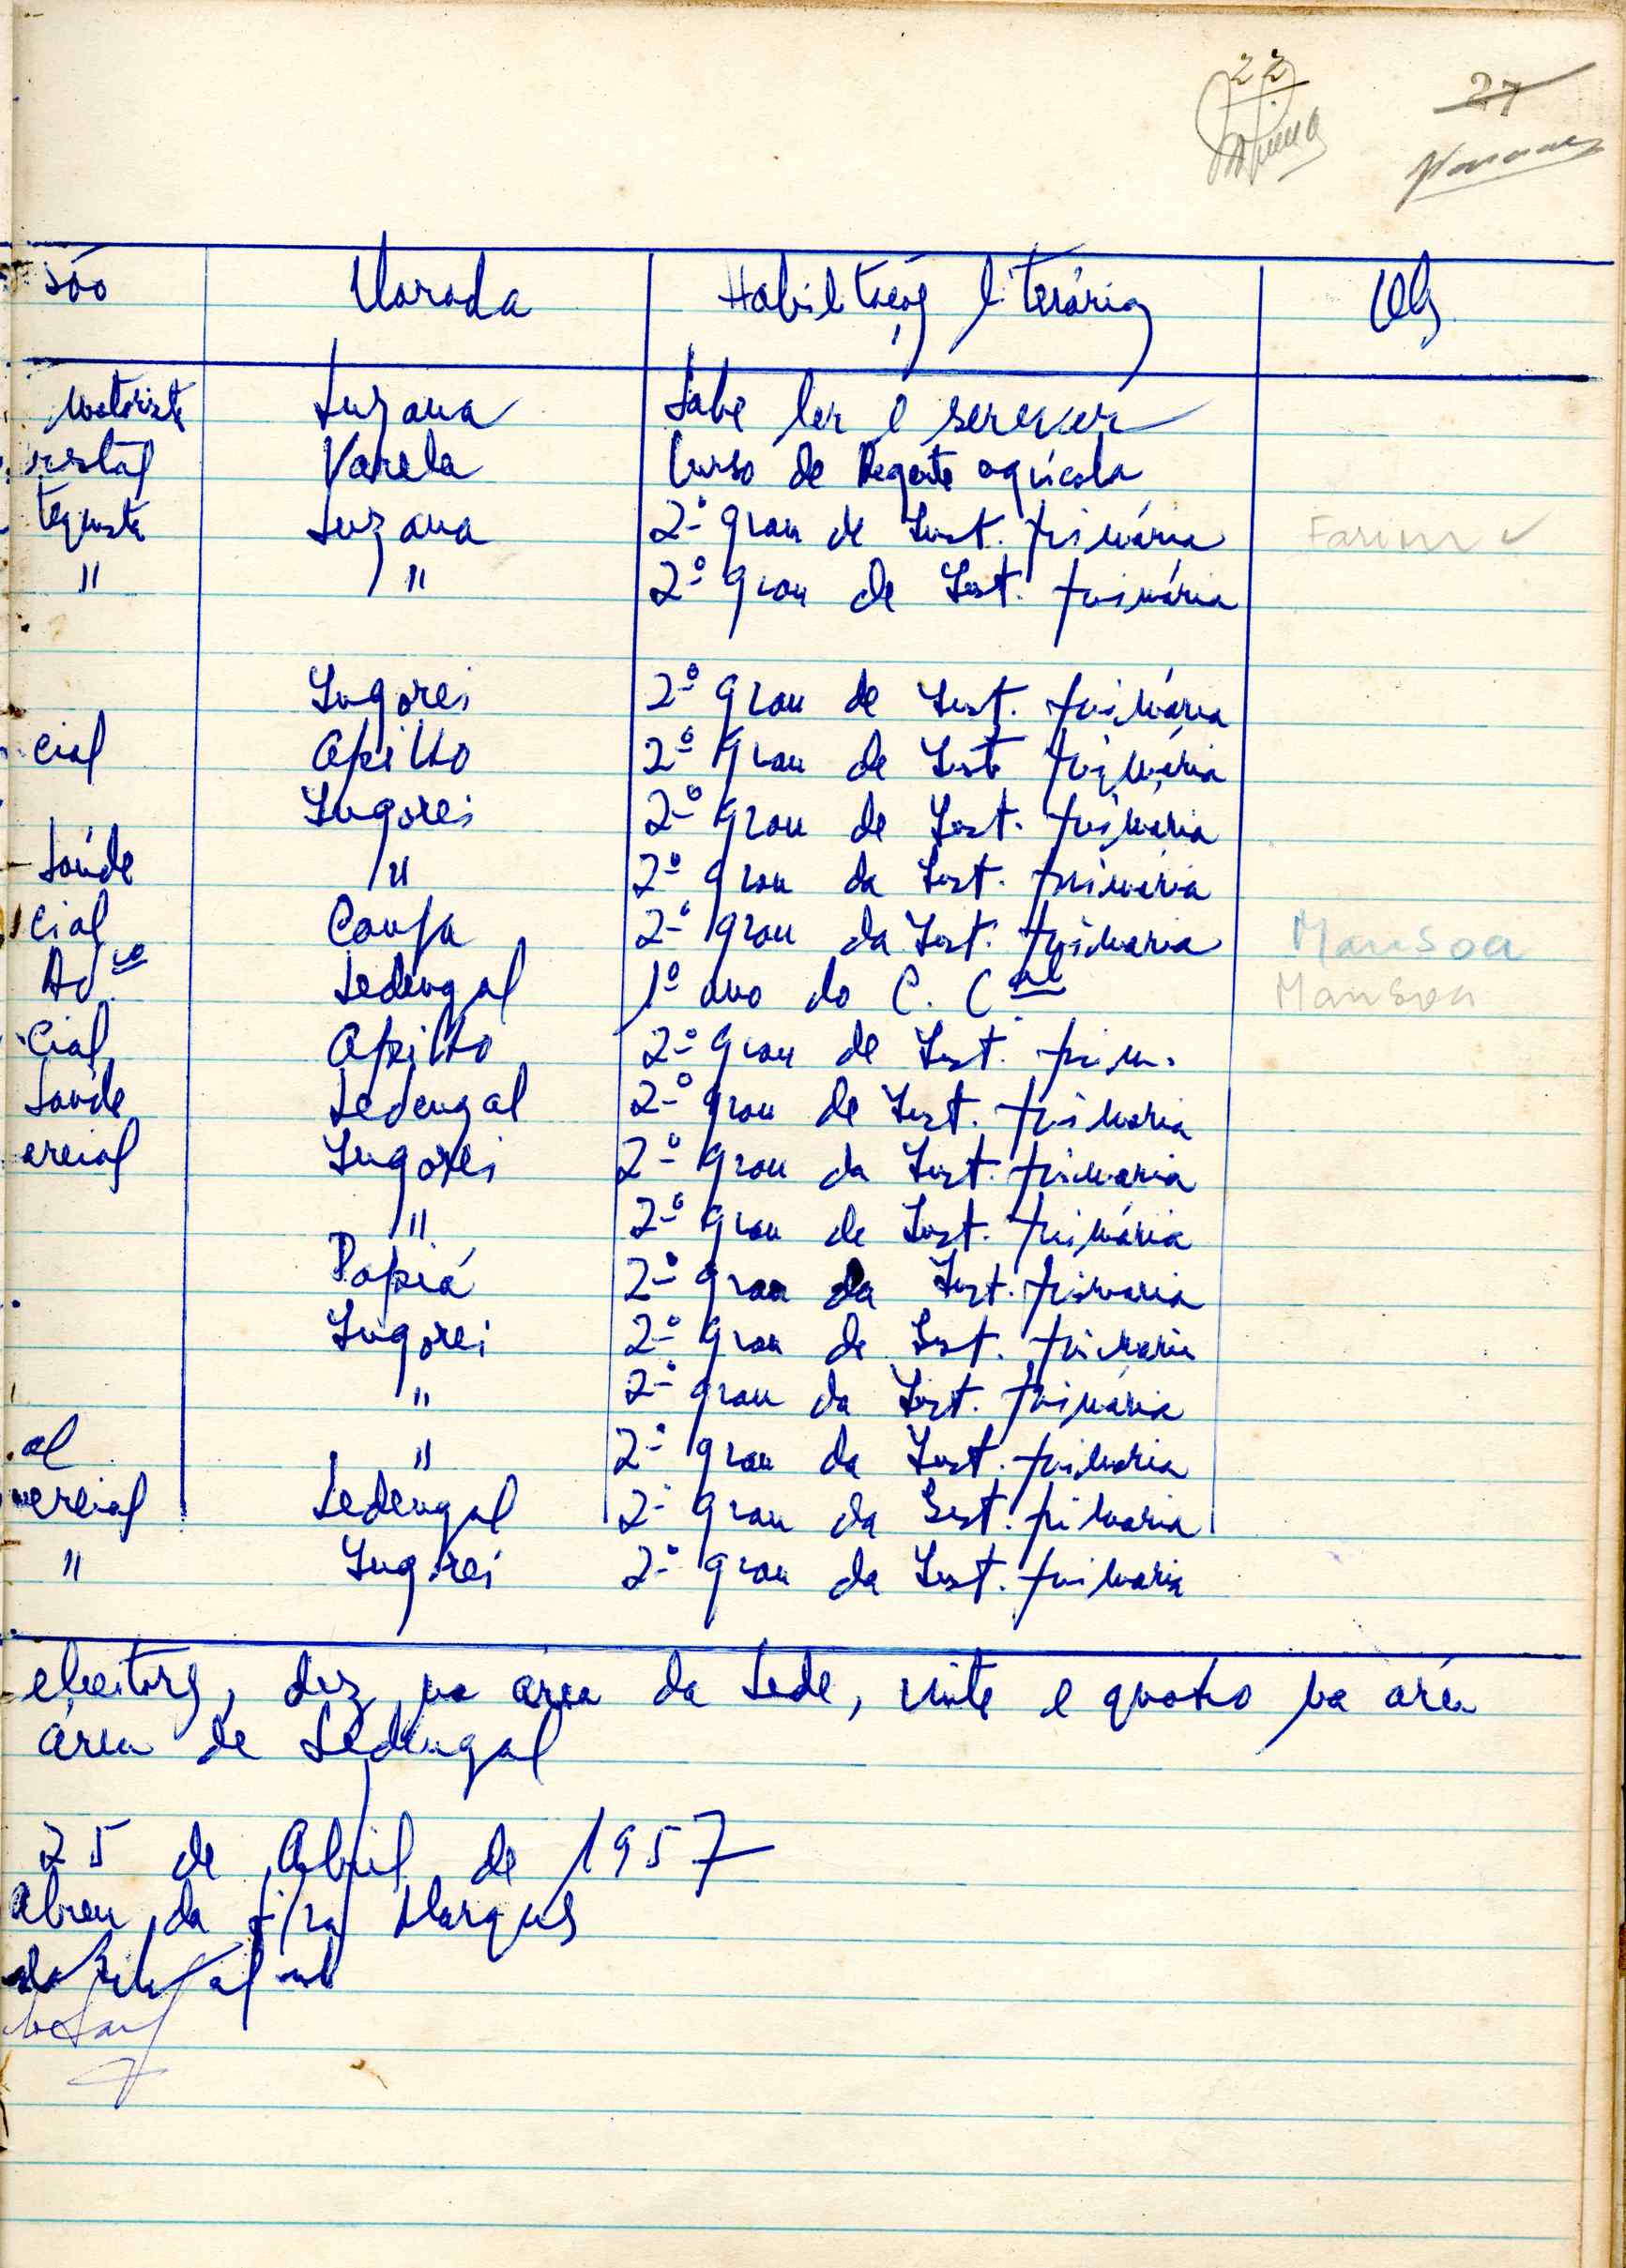 22 27
são Morada Habilitações literárias Obs
motorista Suzana Sabe ler e screver
restal Varela Curso de Regente agrícola
tequista Suzana 2º grau de Inst. primária Farim ✓
" " 2º grau de Inst. primária
Ingorei 2º grau de Inst. primária
cial Apilho 2º grau de Inst. primária
Ingorei 2º grau de Inst. primária
Saúde " 2º grau da Inst. primária
cial Caupa 2º grau da Inst. primaria Mansoa
Adᵛᵒ Sedengal 1º ano do C. Cᵃˡ Mansoa
cial Apilho 2º grau de Inst. prim.
Saúde Sedengal 2º grau de Inst. primaria
ercial Ingorei 2º grau da Inst. primaria
" 2º grau de Inst. primária
Papiá 2º grau da Inst. primaria
Ingorei 2º grau de Inst. primaria
" 2º grau da Inst. primária
al " 2º grau da Inst. primaria
mercial Sedengal 2º grau da Inst. primaria
" Ingorei 2º grau da Inst. primaria
eleitores, dez na área da Sede, vinte e quatro na área
área de Sedengal
25 de Abril de 1957
Abreu da Marques